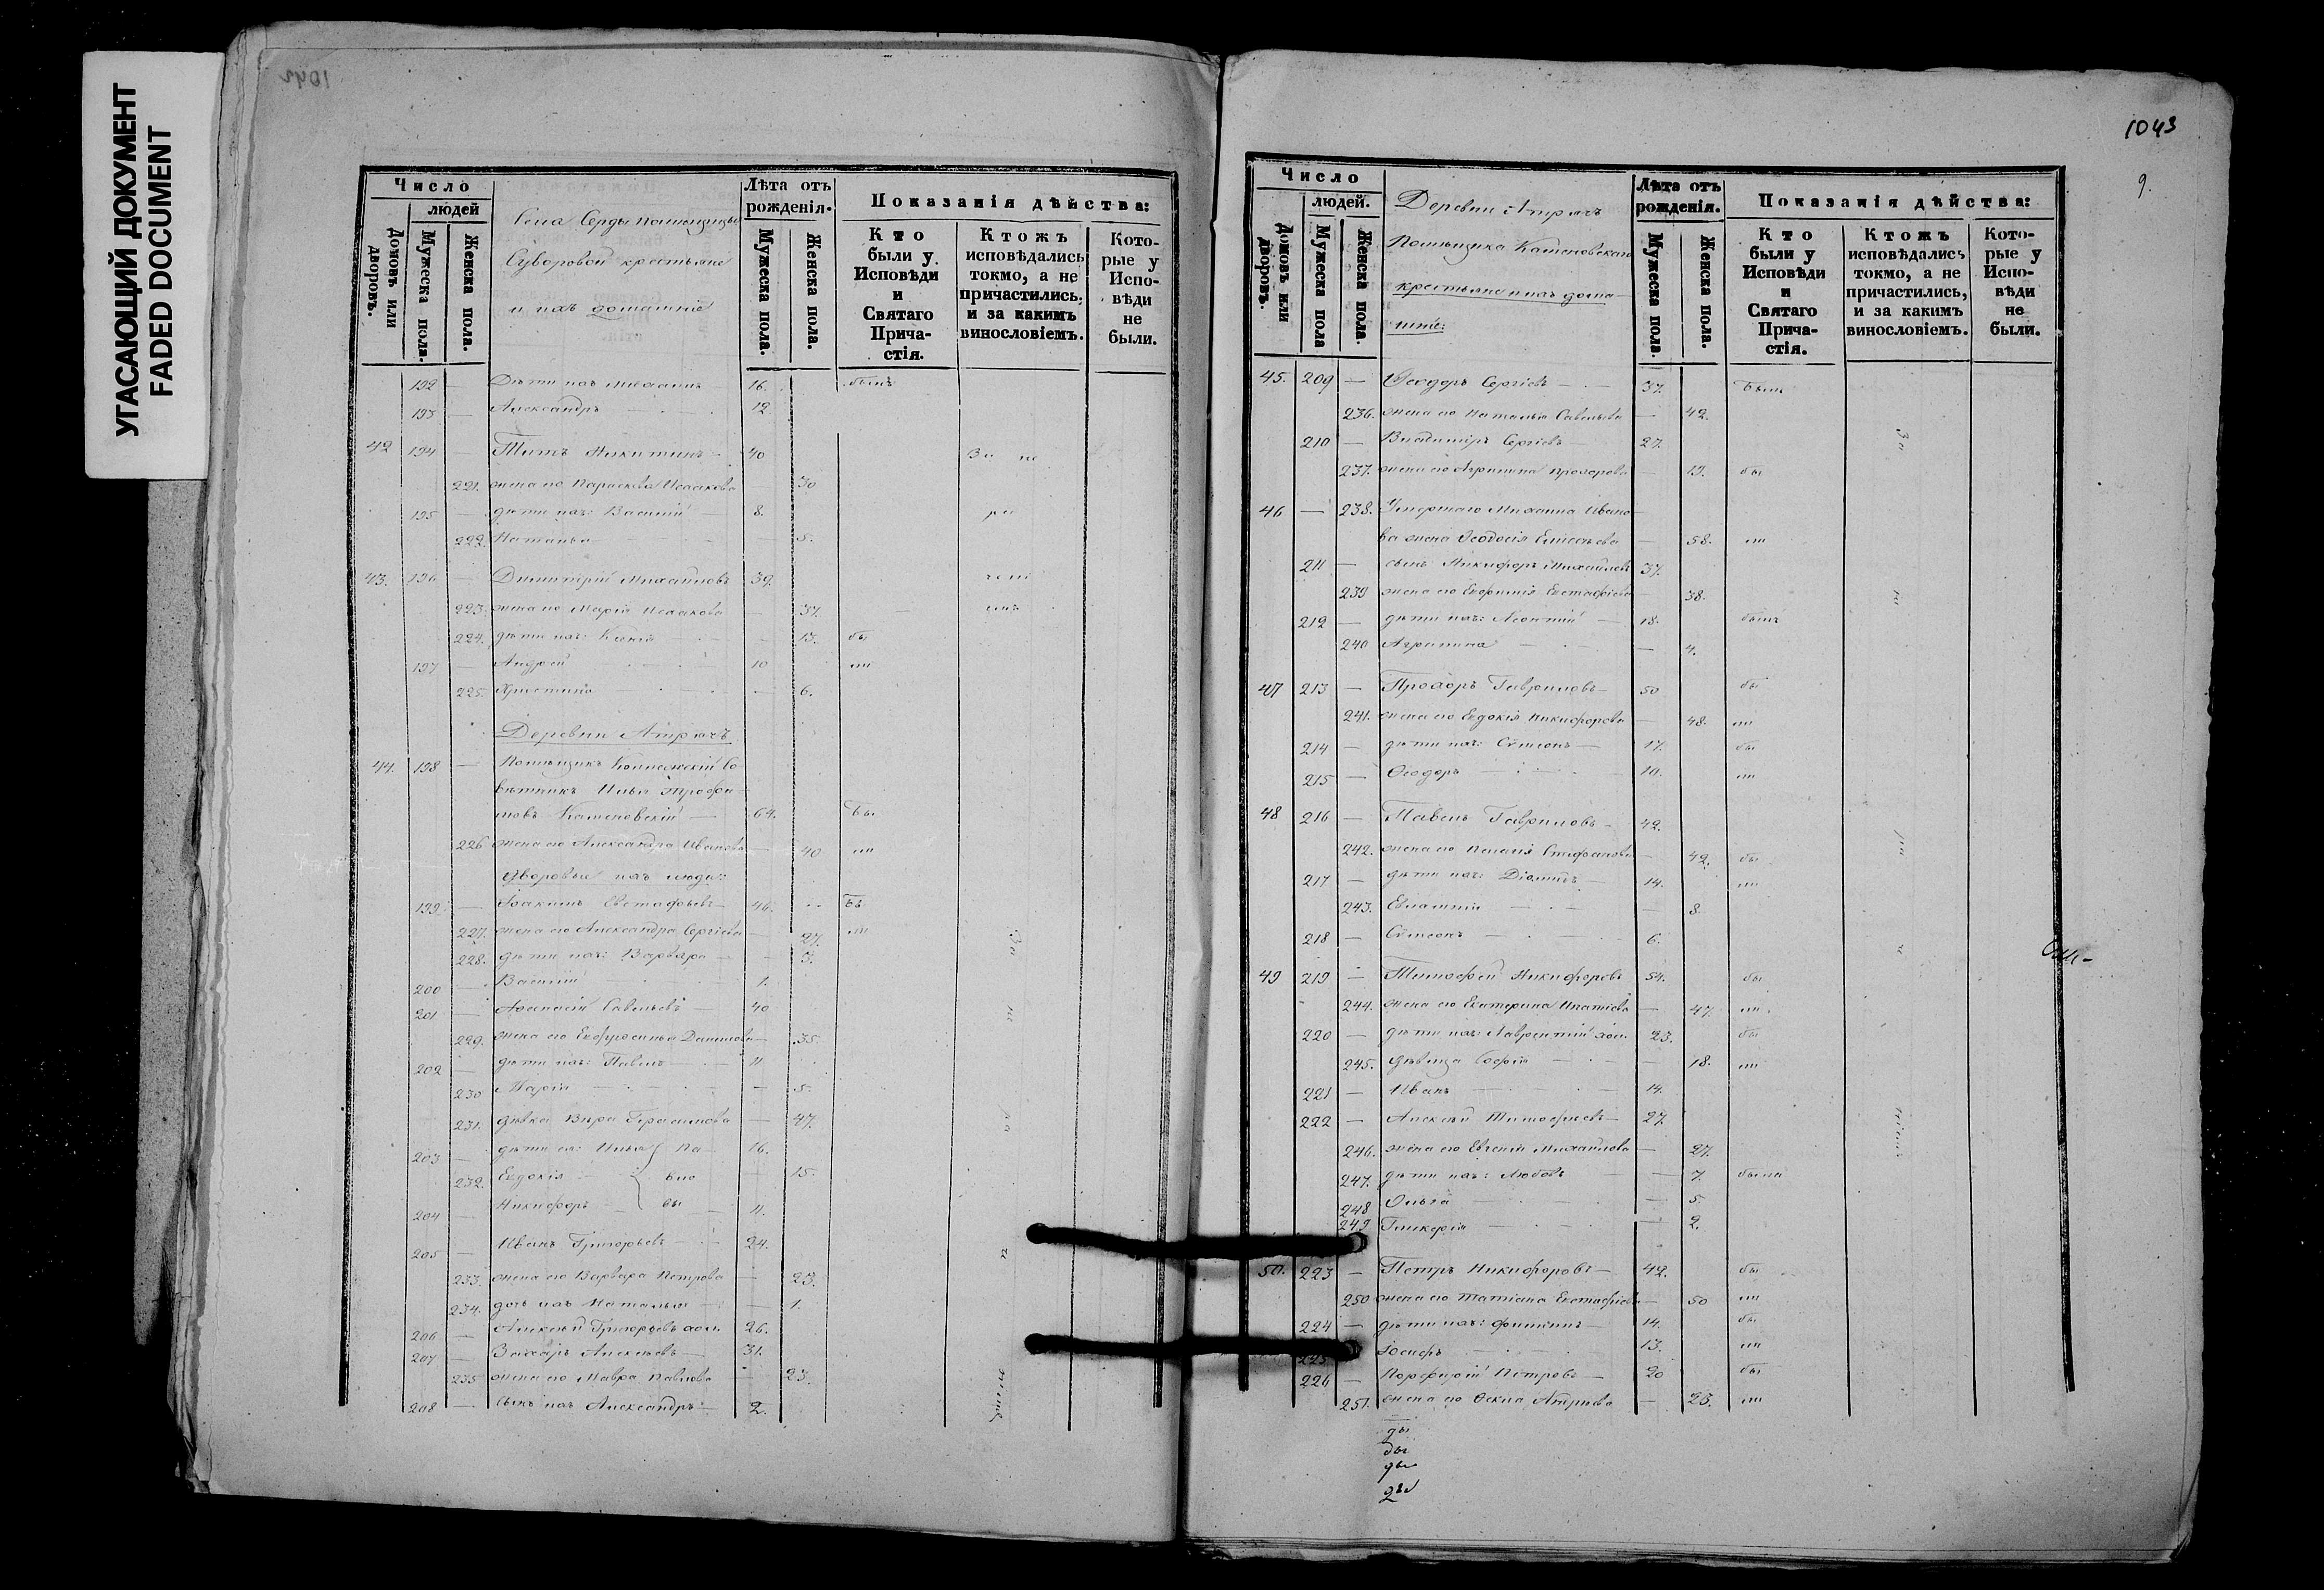 УГАСАЮЩИЙ ДОКУМЕНТ
FADED DOCUMENT
1042
Число
людей
Домовъ или дворовъ.
Мужеска пола.
Женска пола.
Села Серды помѣщицы
Суворовой крестьяне
и ихъ домашніе
Лѣта отъ рожденія.
Мужеска пола.
Женска пола.
Показанія дѣйства:
Кто были у Исповѣди и Святаго Прича-стія.
Ктожъ исповѣдались токмо, а не причастились, и за какимъ винословіемъ.
Кото-рые у Испо-вѣди не были.
192 — Дѣти ихъ Михаилъ 16. былъ
193 — Александръ 12.
42 194 — Титъ Никитинъ — 40
221. жена его Параскева Исаакова — 30
195 — дѣти ихъ: Василій — 8.
222. Наталья — 5.
43. 196 — Димитрій Михайловъ 39.
223. жена его Марія Исаакова — 37.
224. дѣти ихъ: Ксенія — 13. бы
197 — Андрей 10 ли
225. Христина — 6.
Деревни Атрячъ
44. 198 — Помѣщикъ Коллежскій Со-
вѣтникъ Илья Трофи-
мовъ Каменовскій — 64. Бы
226 жена его Александра Иванова — 40 ли
Дворовые ихъ люди:
199 — Іоакимъ Евстафьевъ — 46. Бы
227. жена его Александра Сергіева — 27. ли
228. дѣти ихъ: Варвара — 3.
200 — Василій — 1.
201 — Аѳанасій Савельевъ — 40
229. жена его Евфросинья Данилова — 35
202 — дѣти ихъ: Павелъ — 11
230 Марія — 5.
231. дѣвка Вѣра Герасимова — 47.
203 — дѣти ея: Илья 16.
232. Евдокія — 15.
204 — Никифоръ — 11.
205 — Иванъ Григорьевъ — 24.
233. жена его Варвара Петрова — 23.
234. дочь ихъ Наталья — 1.
206 — Алексѣй Григорьевъ хол. 26.
207 — Захаръ Алексѣевъ — 31.
235 жена его Мавра Павлова — 23.
208 — сынъ ихъ Александръ — 2.
1043
9.
Число
людей.
Домовъ или дворовъ.
Мужеска пола
Женска пола.
Деревни Атрячъ
Помѣщика Каменовскаго
крестьяне и ихъ дома-
шніе:
Лѣта отъ рожденія.
Мужеска пола.
Женска пола.
Показанія дѣйства:
Кто были у Исповѣди и Святаго Прича-стія.
Ктожъ исповѣдались токмо, а не причастились, и за каким винословіемъ.
Кото-рые у Испо-вѣди не были.
45. 209 — Ѳеодоръ Сергіевъ — 37. Были
236. жена его Наталья Савельева — 42.
210 — Владиміръ Сергіевъ — 27.
237. жена его Агрипина Прохорова — 19. бы
46 — 238. Умершаго Михаила Ивано-
ва жена Ѳеодосія Елисѣева — 58. ли
211 — сынъ Никифоръ Михайловъ 37.
239 жена его Евфимія Евстафіева 38.
212 — дѣти ихъ: Леонтій — 18. былъ
240 Агрипина — 4.
47 213 — Прохоръ Гавриловъ — 50 бы
241. жена его Евдокія Никифорова — 48. ли
214 — дѣти ихъ: Сѵмеонъ — 17. бы
215 — Ѳеодоръ — 10. ли
48 216 — Павелъ Гавриловъ — 42.
242. жена его Пелагія Стефанова — 42. бы
217 — дѣти ихъ: Діомидъ — 14. ли
243. Евлампія — 8
218 — Сѵмеонъ — 6.
49 219 — Тимофей Никифоровъ 54. бы
244. жена его Екатерина Ипатіева — 47. ли
220 — дѣти ихъ: Лаврентій хол. 23. бы
245. дѣвица Софія — 18. ли
221 — Иванъ — 14.
222 — Алексѣй Тимофеевъ — 27.
246. жена его Евгенія Михайлова — 27.
247. дѣти ихъ: Любовь — 7. была
248 Ольга — 5
249 Гликерія — 2.
50. 223 — Петръ Никифоровъ — 42. бы
250 жена его Татіана Евстафіева — 50 ли
224 — дѣти ихъ: Филиппъ — 14. бы
225 Іосифъ — 13. ли
226 — Порфирій Петровъ — 20 бы
251. жена его — 23. ли